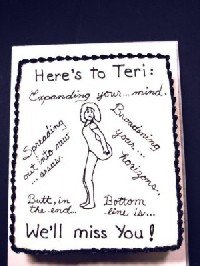 Here's to Teri:
Expanding your...mind.
Spreading
out into new
...areas.
Broadening
your...
horizons.
Butt, in
the end...
Bottom
line is...
We'll miss You!